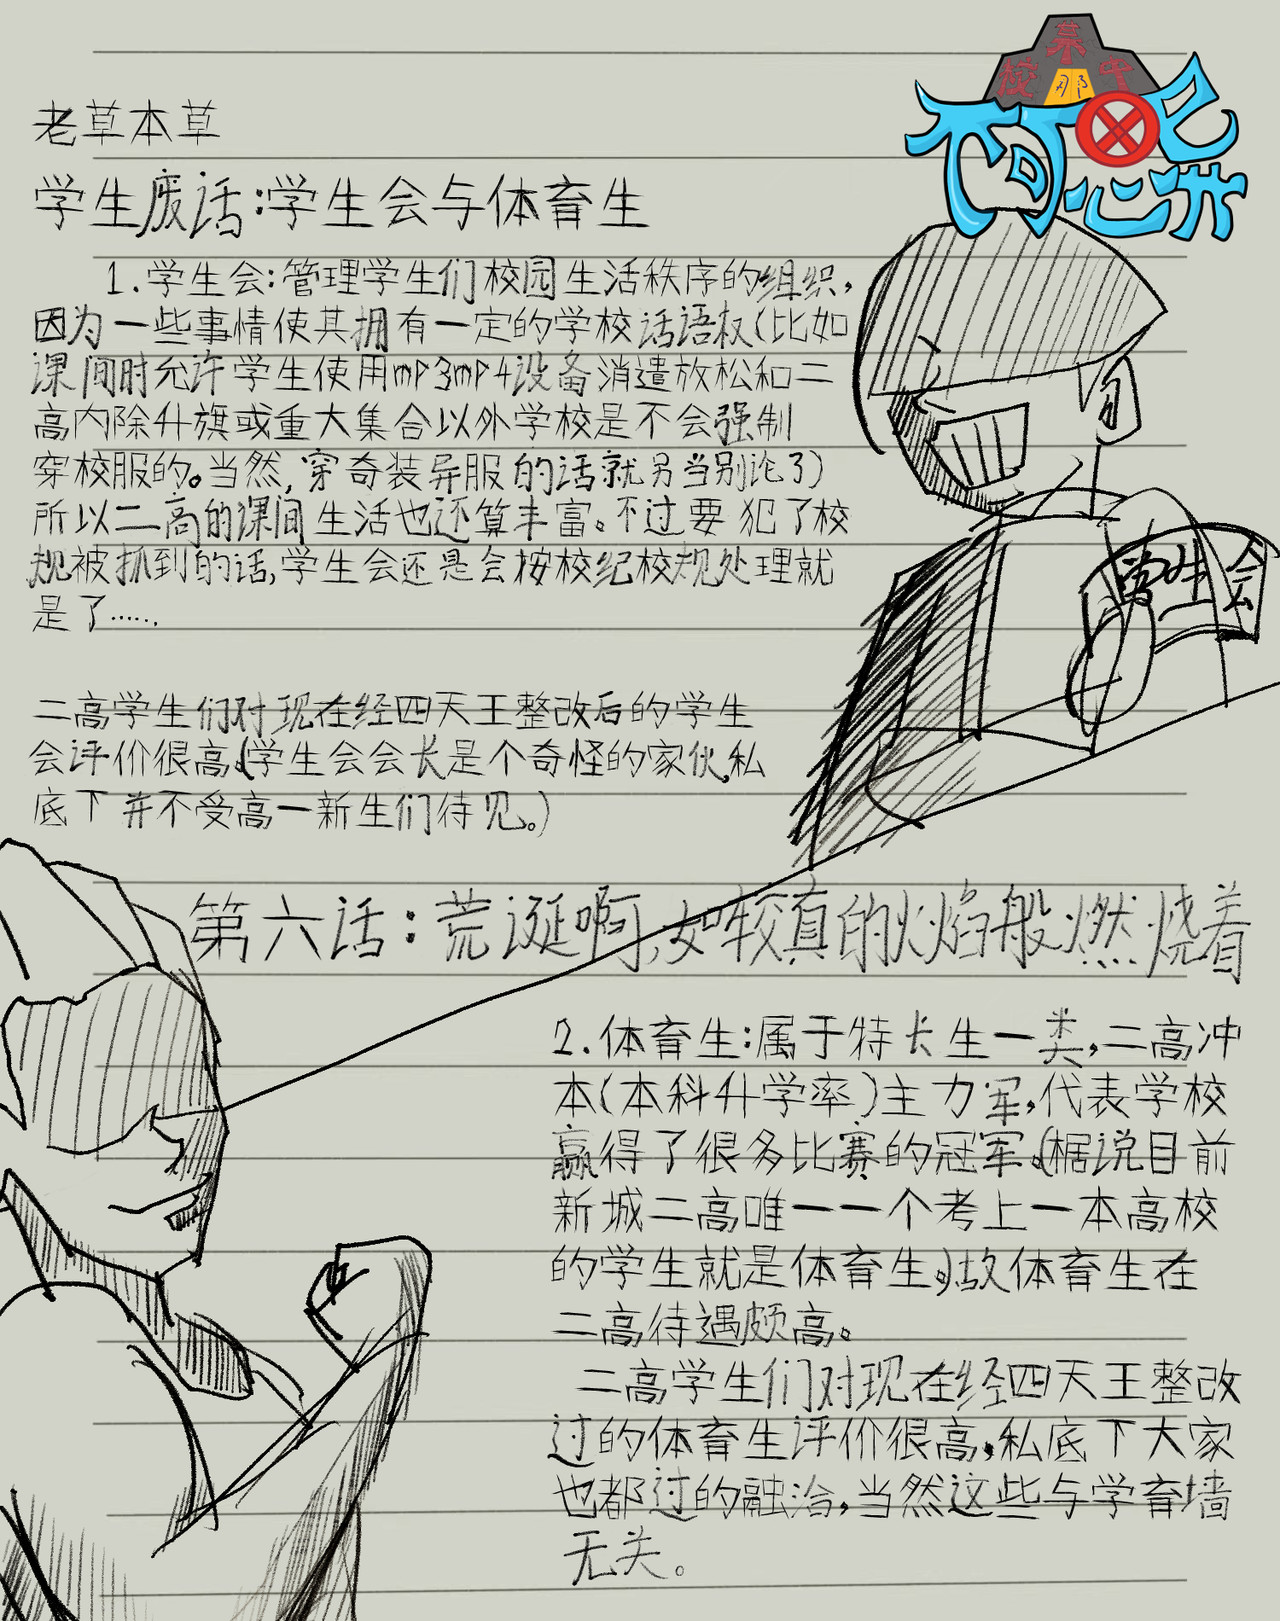 老草本草
学生废话:学生会与体育生
1.学生会:管理学生们校园生活秩序的组织,
因为一些事情使其拥有一定的学校话语权(比如
课间时允许学生使用mp3mp4设备消遣放松和二
高内除升旗或重大集合以外学校是不会强制
穿校服的。当然,穿奇装异服的话就另当别论了)
所以二高的课间生活也还算丰富。不过要犯了校
规被抓到的话,学生会还是会按校纪校规处理就
是了……
学生会
二高学生们对现在经四天王整改后的学生
会评价很高.(学生会会长是个奇怪的家伙,私
底下并不受高一新生们待见。)
第六话:荒诞啊,如较真的火焰般燃烧着
2.体育生:属于特长生一类,二高冲
本(本科升学率)主力军,代表学校
赢得了很多比赛的冠军.(据说目前
新城二高唯一一个考上一本高校
的学生就是体育生.)故体育生在
二高待遇颇高。
二高学生们对现在经四天王整改
过的体育生评价很高,私底下大家
也都过的融洽,当然这些与学育墙
无关。